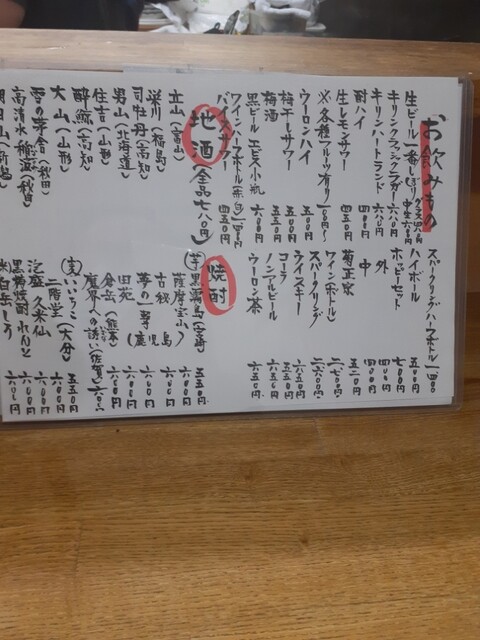 お飲みもの
生ビール一番しぼり 中生 六〇〇円
キリンクラシックラガー 六八〇円
キリンハートランド 六八〇円
酎ハイ 四五〇円
生レモンサワー 五五〇円
※各種フルーツ有り 一〇〇円〜
ウーロンハイ 五五〇円
梅干しサワー 五五〇円
梅酒 五五〇円
黒ビール エビス小瓶 六〇〇円
ワインハーフボトル(赤・白)
バイスサワー
スパークリングハーフボトル
ハイボール 五五〇円
ホッピーセット 七〇〇円
外 四〇〇円
中 四〇〇円
菊正宗 五五〇円
ワイン(ボトル)
スパークリング
ウイスキー 六五〇円
コーラ
ノンアルビール
ウーロン茶
地酒(全品七八〇円)
立山(富山)
栄川(福島)
司牡丹(高知)
男山(北海道)
住吉(山形)
酔鯨(高知)
大山(山形)
雪の茅舎(秋田)
高清水
朝日山(新潟)
焼酎
(芋)黒霧島(宮崎) 五五〇円
薩摩宝山 六〇〇円
古秘 六〇〇円
夢の一雫(鹿児島) 六〇〇円
田苑 六〇〇円
倉岳(熊本) 六〇〇円
魔界への誘い(佐賀)
(麦)いいちこ(大分) 五五〇円
二階堂 六〇〇円
泡盛 久米仙 六〇〇円
黒糖焼酎 れんと 六〇〇円
米 白岳しろ 六〇〇円